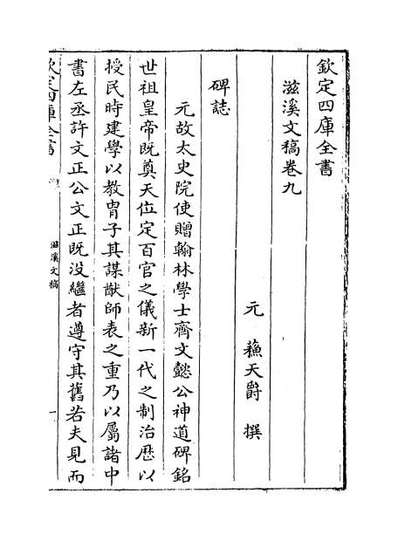 欽定四庫全書
滋溪文稿卷九
元　蘓天爵　撰
碑誌
元故太史院使贈翰林學士齊文懿公神道碑銘
世祖皇帝既奠天位定百官之儀新一代之制治歴以
授民時建學以教胄子其謀猷師表之重乃以屬諸中
書左丞許文正公文正既没繼者遵守其舊若夫見而
欽定四庫全書
滋溪文稿
一